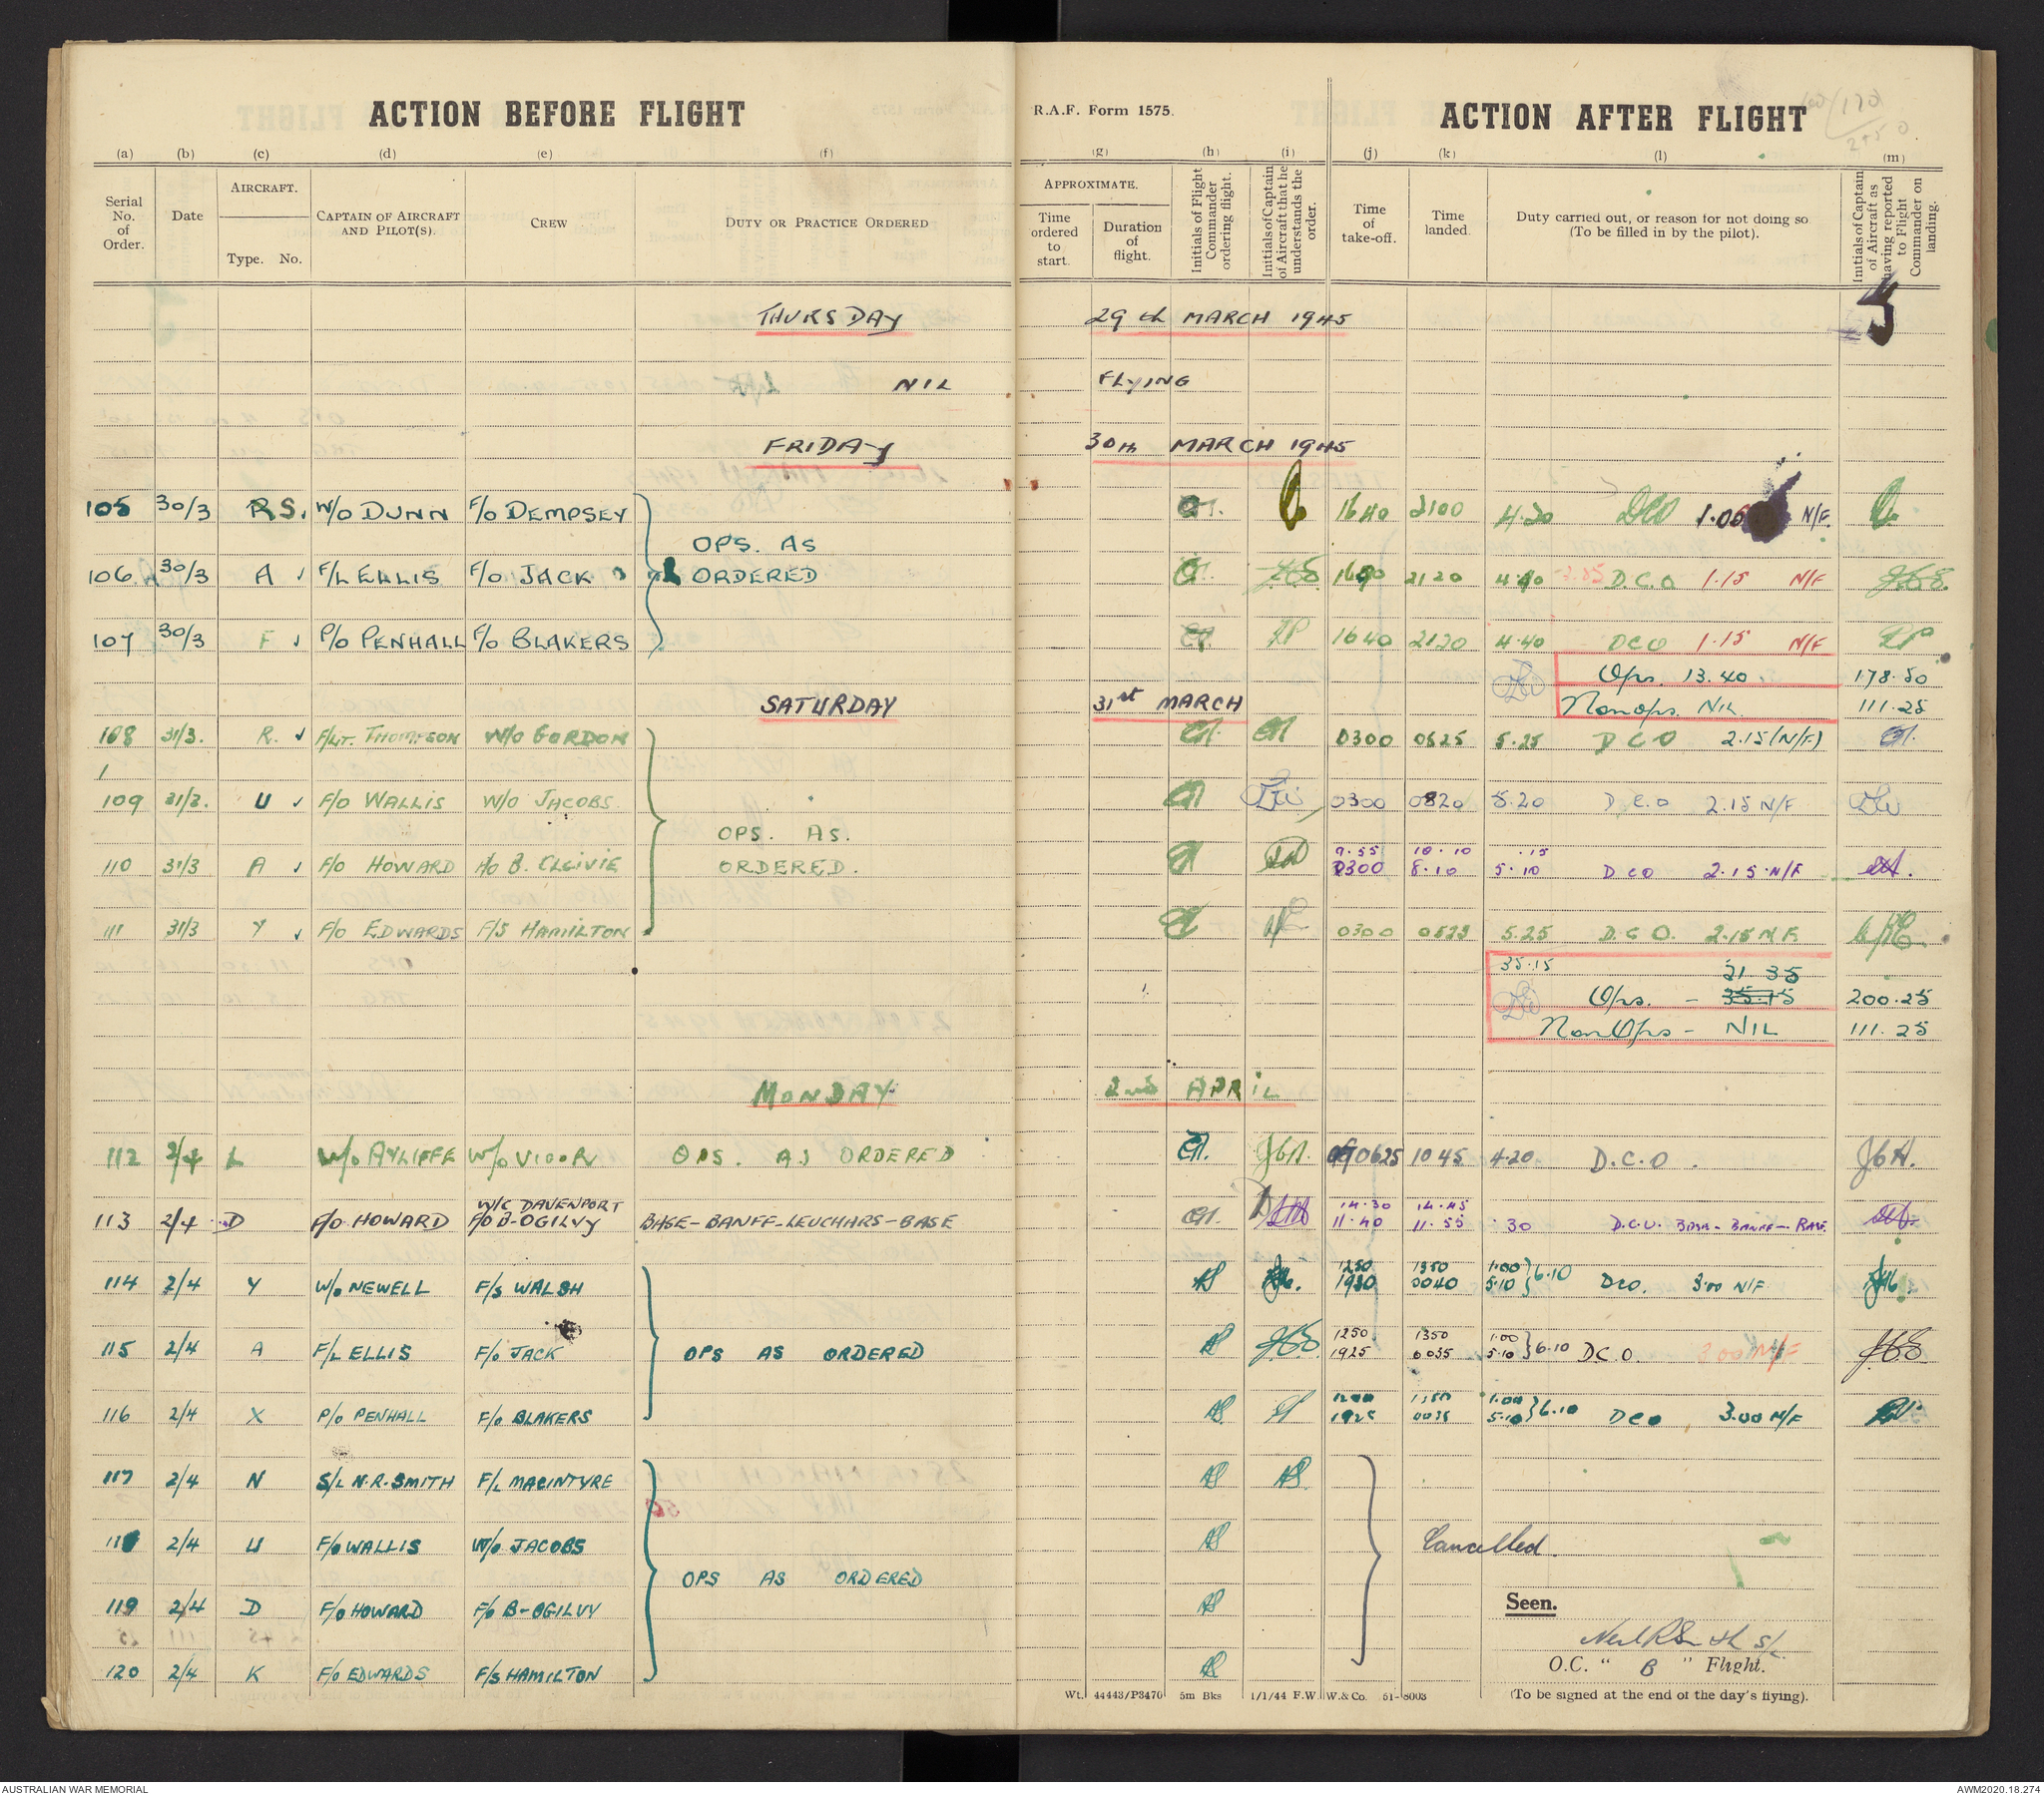 ACTION BEFORE FLIGHT
R.A.F. Form 1575.
ACTION AFTER FLIGHT
(a) (b) (c) (d) (e) (f) (g) (h) (i) (j) (k) (l) (m)
Serial No. of Order.
Date
AIRCRAFT.
Type. No.
CAPTAIN OF AIRCRAFT AND PILOT(S).
CREW
DUTY OR PRACTICE ORDERED
APPROXIMATE.
Time ordered to start.
Duration of flight.
Initials of Flight Commander ordering flight.
Initials of Captain of Aircraft that he understands the order.
Time of take-off.
Time landed.
Duty carried out, or reason for not doing so
(To be filled in by the pilot).
Initials of Captain of Aircraft as having reported to Flight Commander on landing.
THURSDAY 29th MARCH 1945
NIL FLYING
FRIDAY 30th MARCH 1945
105 30/3 RS. W/O DUNN F/O DEMPSEY 1640 2100 4.20 DCO 1.00 N/F.
OPS. AS
106 30/3 A F/L ELLIS F/O JACK ORDERED 2120 D.C.O 1.15 N/F
107 30/3 F P/O PENHALL F/O BLAKERS 1640 2120 4.40 DCO 1.15 N/F
Ops. 13.40 178.50
SATURDAY 31st MARCH Non Ops. NIL 111.25
108 31/3. R. F/LT. THOMPSON W/O GORDON 0300 0825 5.25 DCO 2.15 (N/F)
109 31/3. U F/O WALLIS W/O JACOBS. 0300 0820 5.20 D.C.O 2.15 N/F
OPS. AS.
9.55 10.10 .15
110 31/3 A F/O HOWARD F/O B. OLGIVIE ORDERED. 0300 8.10 5.10 DCO 2.15 N/F
111 31/3 Y F/O EDWARDS F/S HAMILTON 0300 0825 5.25 D.C.O. 2.15 N.F.
35.15 21 35
Ops. - 35.15 200.25
Non Ops - NIL 111.25
MONDAY 2nd APRIL
112 2/4 L W/O AYLIFFE W/O VIGOR OPS. AS ORDERED 0625 1045 4.20 D.C.O. JGA.
W/C DAVENPORT 14.30 14.45
113 2/4 D F/O HOWARD F/O B-OGILVY BASE-BANFF-LEUCHARS-BASE 11.40 11.55 .30 D.C.O. BASE - BANFF - BASE.
1250 1350 1.00
114 2/4 Y W/O NEWELL F/S WALSH 1930 0040 5.10 } 6.10 DCO. 3.00 N/F
1250 1350 1.00
115 2/4 A F/L ELLIS F/O JACK OPS AS ORDERED 1925 0035 5.10 } 6.10 D.C.O. 3.00 N/F
1350 1.00
116 2/4 X P/O PENHALL F/O BLAKERS 1925 0035 5.10 } 6.10 DCO 3.00 N/F
117 2/4 N S/L N.R. SMITH F/L MACINTYRE
118 2/4 U F/O WALLIS W/O JACOBS Cancelled.
OPS AS ORDERED
119 2/4 D F/O HOWARD F/O B-OGILVY
Seen.
Neil R Smith S/L.
120 2/4 K F/O EDWARDS F/S HAMILTON
O.C. " B " Flight.
Wt. 44443/P3470 5m Bks 1/1/44 F.W. W. & Co. 51-8003
(To be signed at the end of the day's flying).
AUSTRALIAN WAR MEMORIAL
AWM2020.18.274